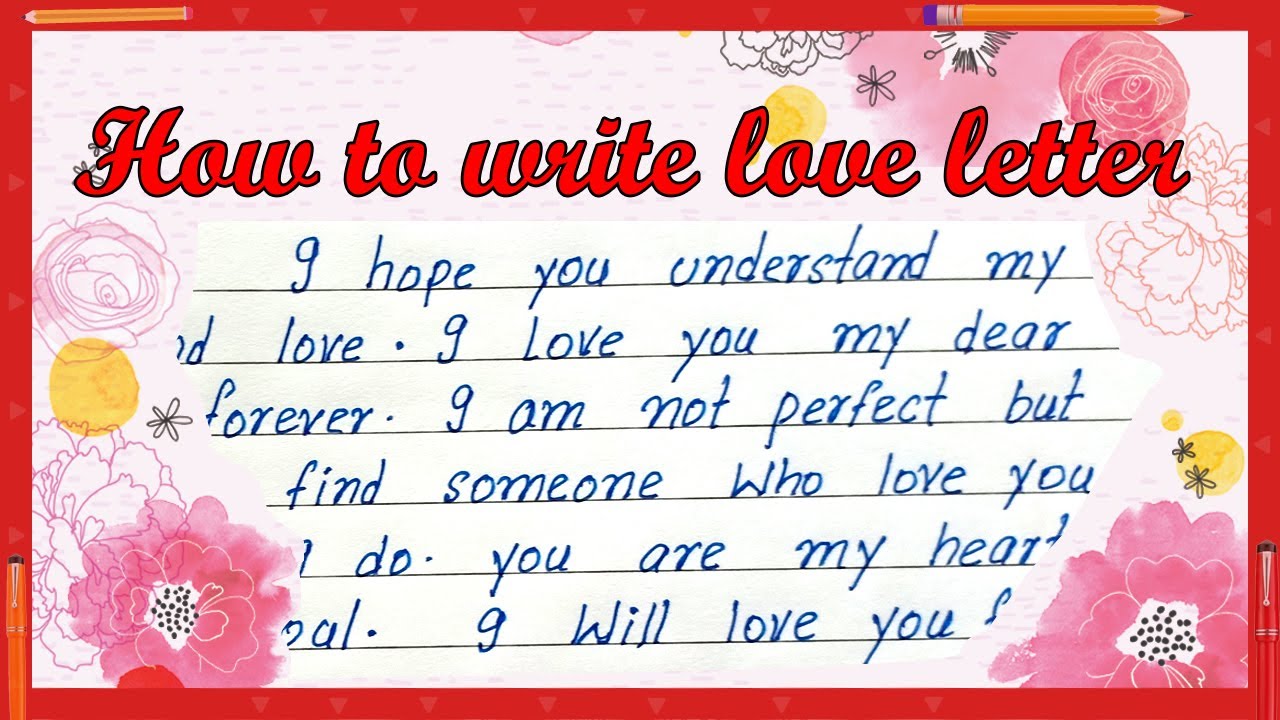 How to write love letter
I hope you understand my
love. I Love you my dear
forever. I am not perfect but
find someone who love you
do. you are my heart
I will love you